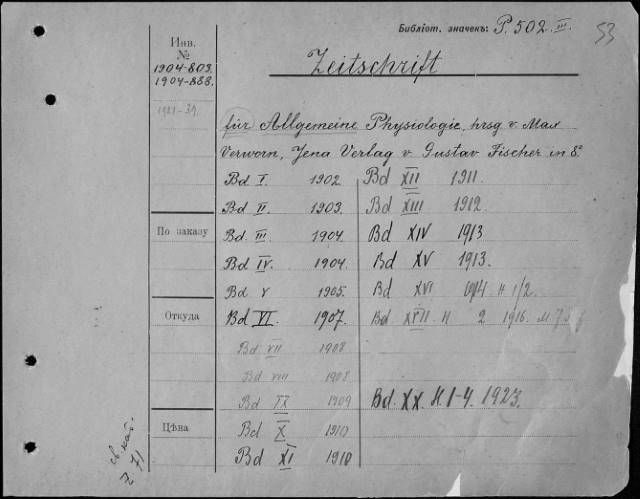 Библіот. значекъ: P. 502. III.
53
Инв.
№
1904-803.
1904-888.
1921-39.
Zeitschrift
für Allgemeine Physiologie, hrsg v. Max
Verworn, Jena Verlag v Gustav Fischer in 8º
Bd I. 1902
Bd II. 1903.
Bd III. 1904.
Bd IV. 1904.
Bd V 1905.
Bd VI. 1907.
Bd VII 1908
Bd VIII 1908
Bd IX 1909
Bd X 1910
Bd XI 1910
Bd XII 1911.
Bd XIII 1912.
Bd XIV 1913
Bd XV 1913.
Bd XVI 1914 H 1/2.
Bd XVII H 2 1916.
Bd. XX. H. 1-4. 1923.
По заказу
Откуда
Цѣна
Z 71